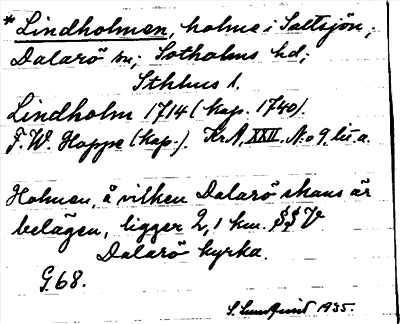 * Lindholmen, holme i Saltsjön;
Dalarö sn; Sotholms hd;
Sthlms l.
Lindholm 1714 (kop. 1740).
F. W. Hoppe (kop.). Kr A, XXII. No 9, lit. a.
Holmen, å vilken Dalarö skans är
belägen, ligger 2,1 km. SSV
Dalarö kyrka.
G. 68.
S. Lundqvist 1935.